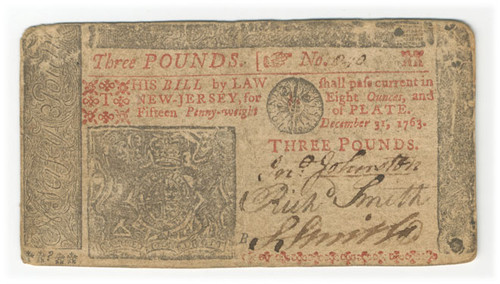 Three POUNDS. [ No.
THIS BILL by LAW shall pass current in
NEW-JERSEY, for Eight Ounces, and
Fifteen Penny-weight of PLATE.
December 31, 1763.
THREE POUNDS.
Jno. Johnston
Richd Smith
S Smith